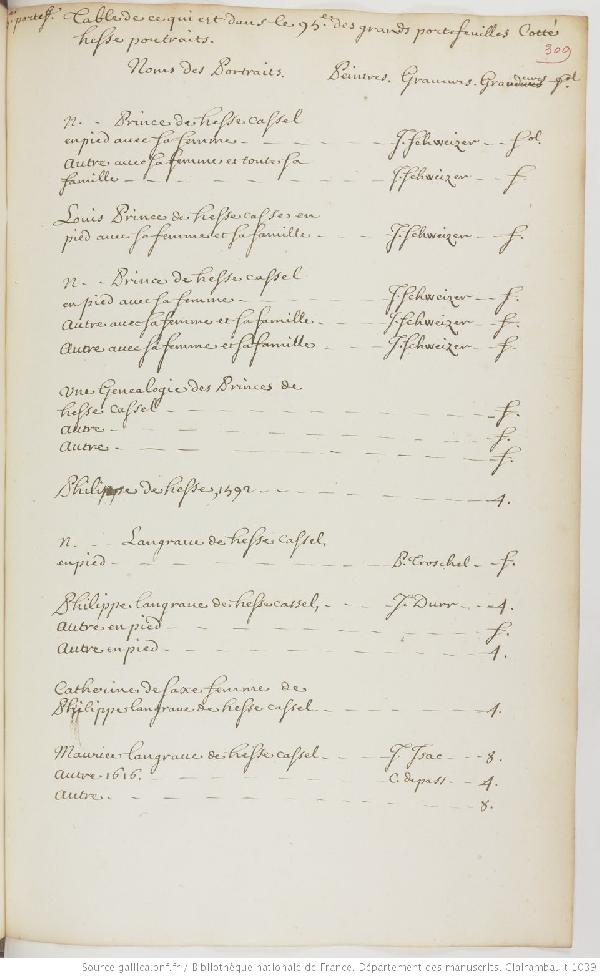 portef. Table de ce qui est dans le 95e. des grands portefeuilles Cotté
hesse portraits.
309
Noms des Portraits. Peintres. Graueurs. Grandeurs fol
N. - Prince de hesse cassel
en pied auec sa femme - - - J. Schweizer - - fol.
Autre auec sa femme et toute sa
famille - - - J. Schweizer - - f.
Louis Prince de hesse casse en
pied auec sa femme et sa famille - - J. Schweizer - - f.
N. - - Prince de hesse cassel
en pied auec sa femme - - - J. Schweizer - - f.
Autre auec sa femme et sa famille - - - J. Schweizer - - f.
Autre auec sa femme et sa famille - - J. Schweizer - - f.
Vne Genealogie des Princes de
hesse cassel - - - f.
Autre - - - f.
Autre - - - f.
Philippe de hesse, 1592 - - - 4.
N. - - Langraue de hesse cassel,
en pied - - - P. Troschel - - f.
Philippe langraue de hesse cassel, - - - J. Durr - - 4.
Autre en pied - - - f.
Autre en pied - - - 4.
Catherine de saxe femme de
Philippe langraue de hesse cassel - - - 4.
Maurice langraue de hesse cassel - - - J. Isac - - 8.
Autre 1616. - - - C. de pass - - 4.
Autre - - - 8.
Source gallica.bnf.fr / Bibliothèque nationale de France. Département des manuscrits. Clairambault 1039